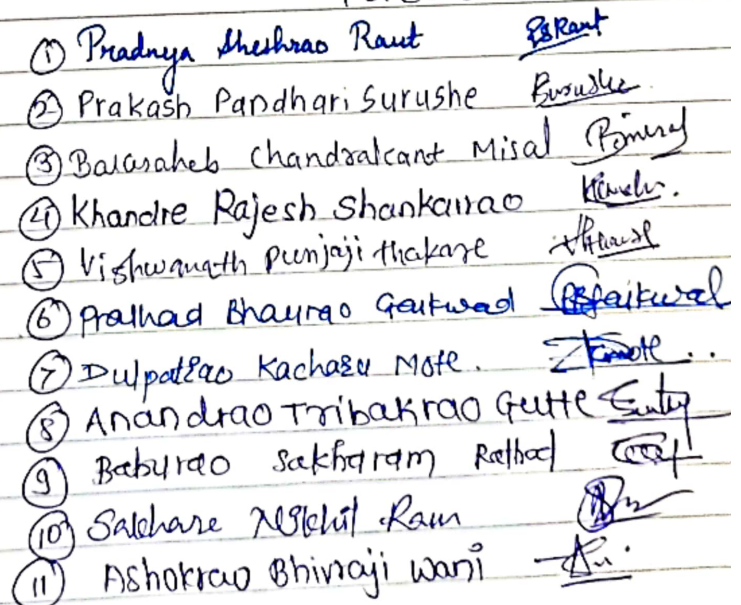 1 Pradnya Sheshrao Raut PSRaut
2 Prakash Pandhari Surushe
3 Balasaheb Chandrakant Misal
4 Khandre Rajesh Shankarrao
5 Vishwanath Punjaji thakare
6 Pralhad Bhaurao Gaikwad PBGaikwad
7 Dulpatrao Kacharu Mote.
8 Anandrao Tribakrao Gutte
9 Baburao Sakharam Rathod
10 Salehare Nikhil Ram
11 Ashokrao Bhivraji Wani